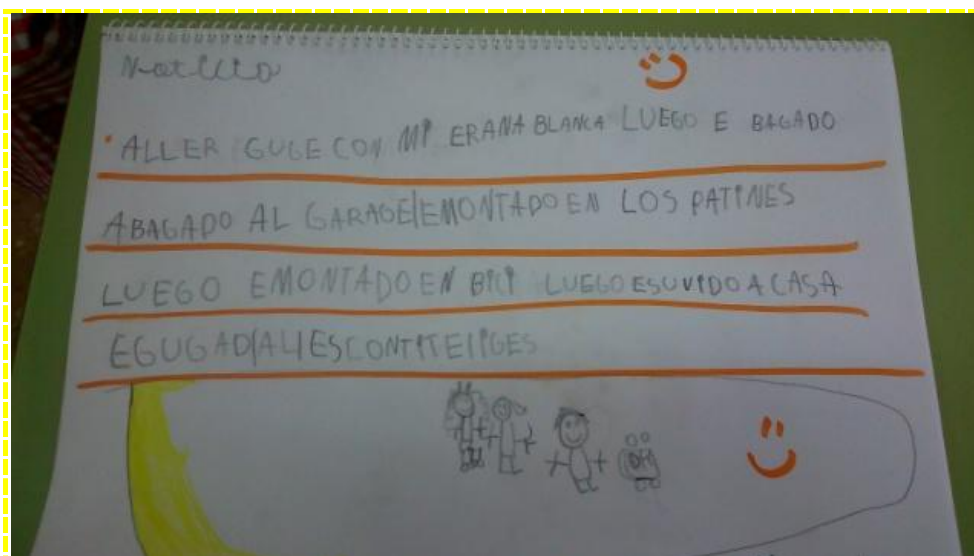 ALLER GUGE CON MI ERANA BLANCA LUEGO E BAGADO
ABAGADO AL GARAGE/EMONTADO EN LOS PATINES
LUEGO EMONTADO EN BICI LUEGO ESUVIDO A CASA
EGUGAD/ALIESCONTITE